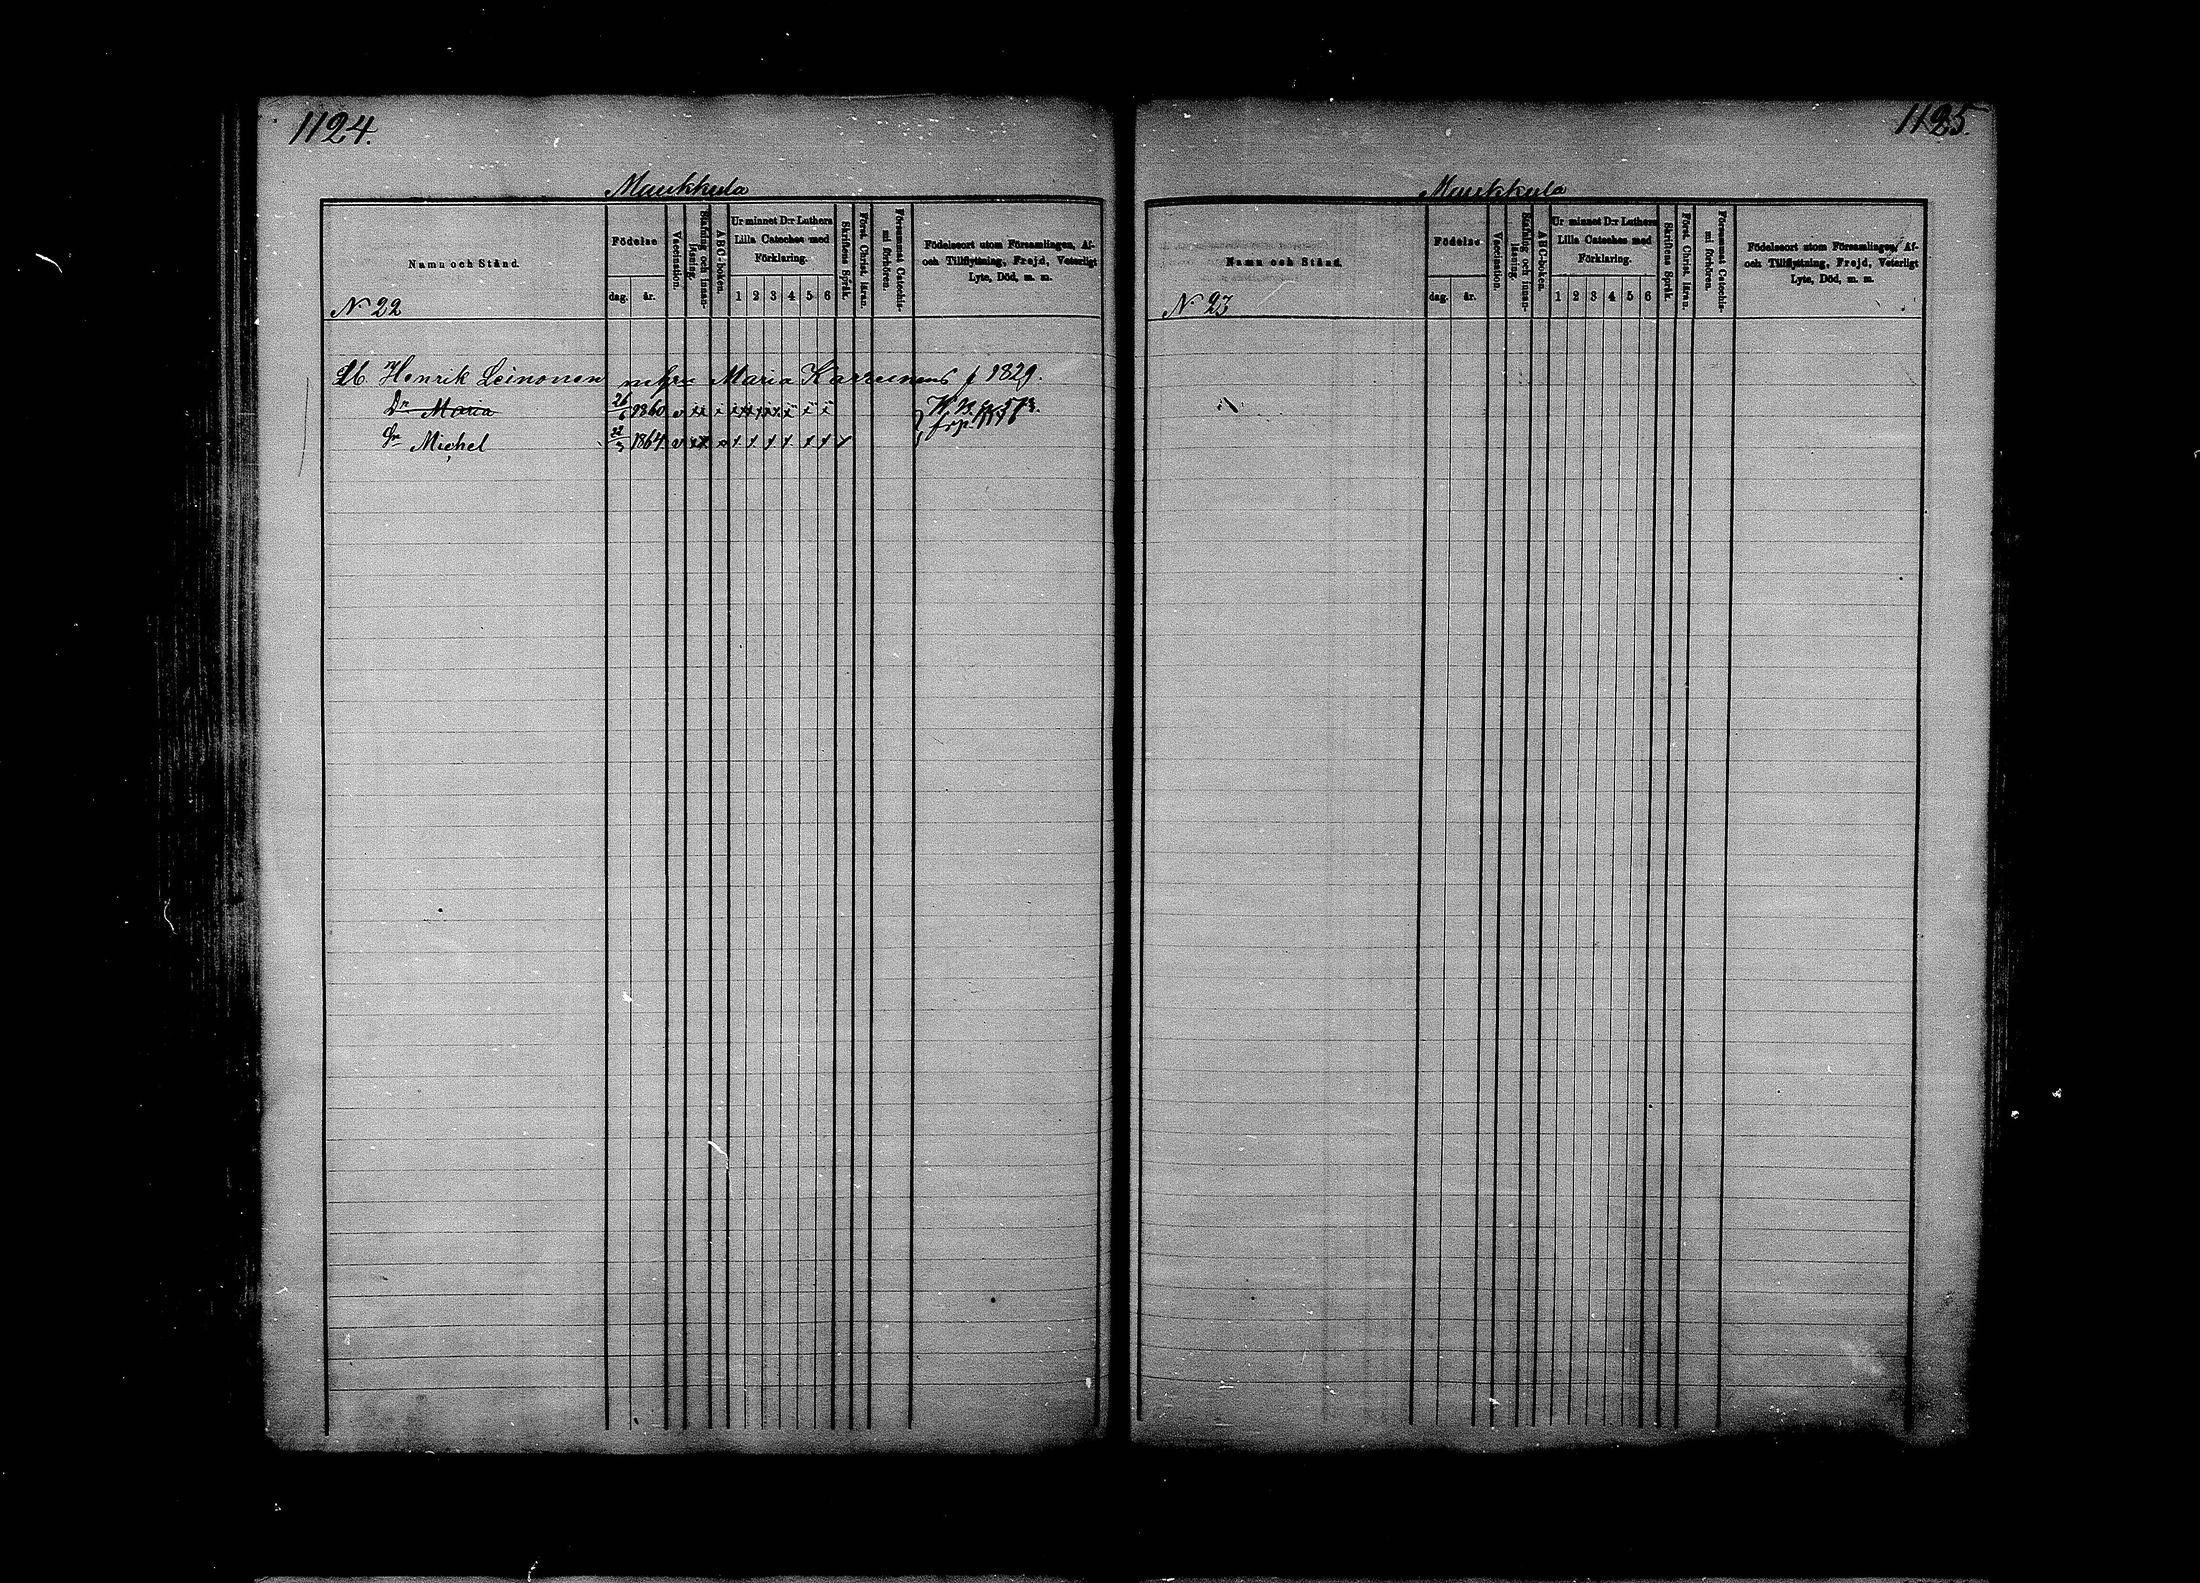 1124.
Maukkula
Namn och Stånd.
Födelse
dag. år.
Vaccination.
Stafning och innanläsning.
A B C-boken.
Ur minnet D:r Luthers
Lilla Cateches med
Förklaring.
1 2 3 4 5 6
Skriftens Språk.
Först. Christ. läran.
Försummat Catechismi förhören.
Födelseort utom Församlingen, Af-
och Tillflyttning, Frejd, Veterligt
Lyte, Död, m. m.
N 22
Henrik Leinonen Maria f 1829.
Dr Maria 26/6 1860
Sn Michel 22/3 1864
1125.
Maukkula
Namn och Stånd.
Födelse
dag. år.
Vaccination.
Stafning och innanläsning.
A B C-boken.
Ur minnet D:r Luthers
Lilla Cateches med
Förklaring.
1 2 3 4 5 6
Skriftens Språk.
Först. Christ. läran.
Försummat Catechismi förhören.
Födelseort utom Församlingen, Af-
och Tillflyttning, Frejd, Veterligt
Lyte, Död, m. m.
N. 23